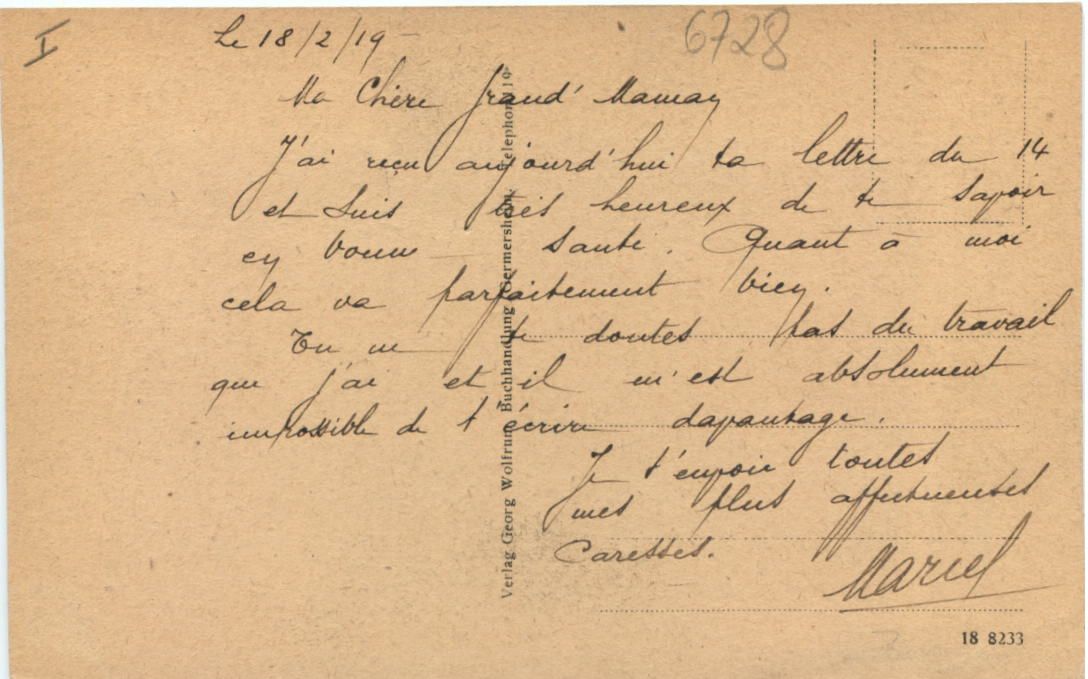 I
6728
Le 18/2/19
Ma Chère Grand' Maman
J'ai reçu aujourd'hui ta lettre du 14
et suis très heureux de te savoir
en bonne santé. Quant à moi
cela va parfaitement bien.
Tu ne te doutes pas du travail
que j'ai et il m'est absolument
impossible de t'écrire davantage.
Je t'envoie toutes
mes plus affectueuses
Caresses.
Marcel
Verlag Georg Wolfrum, Buchhandlung, Germersheim. Telephon 119
18 8233